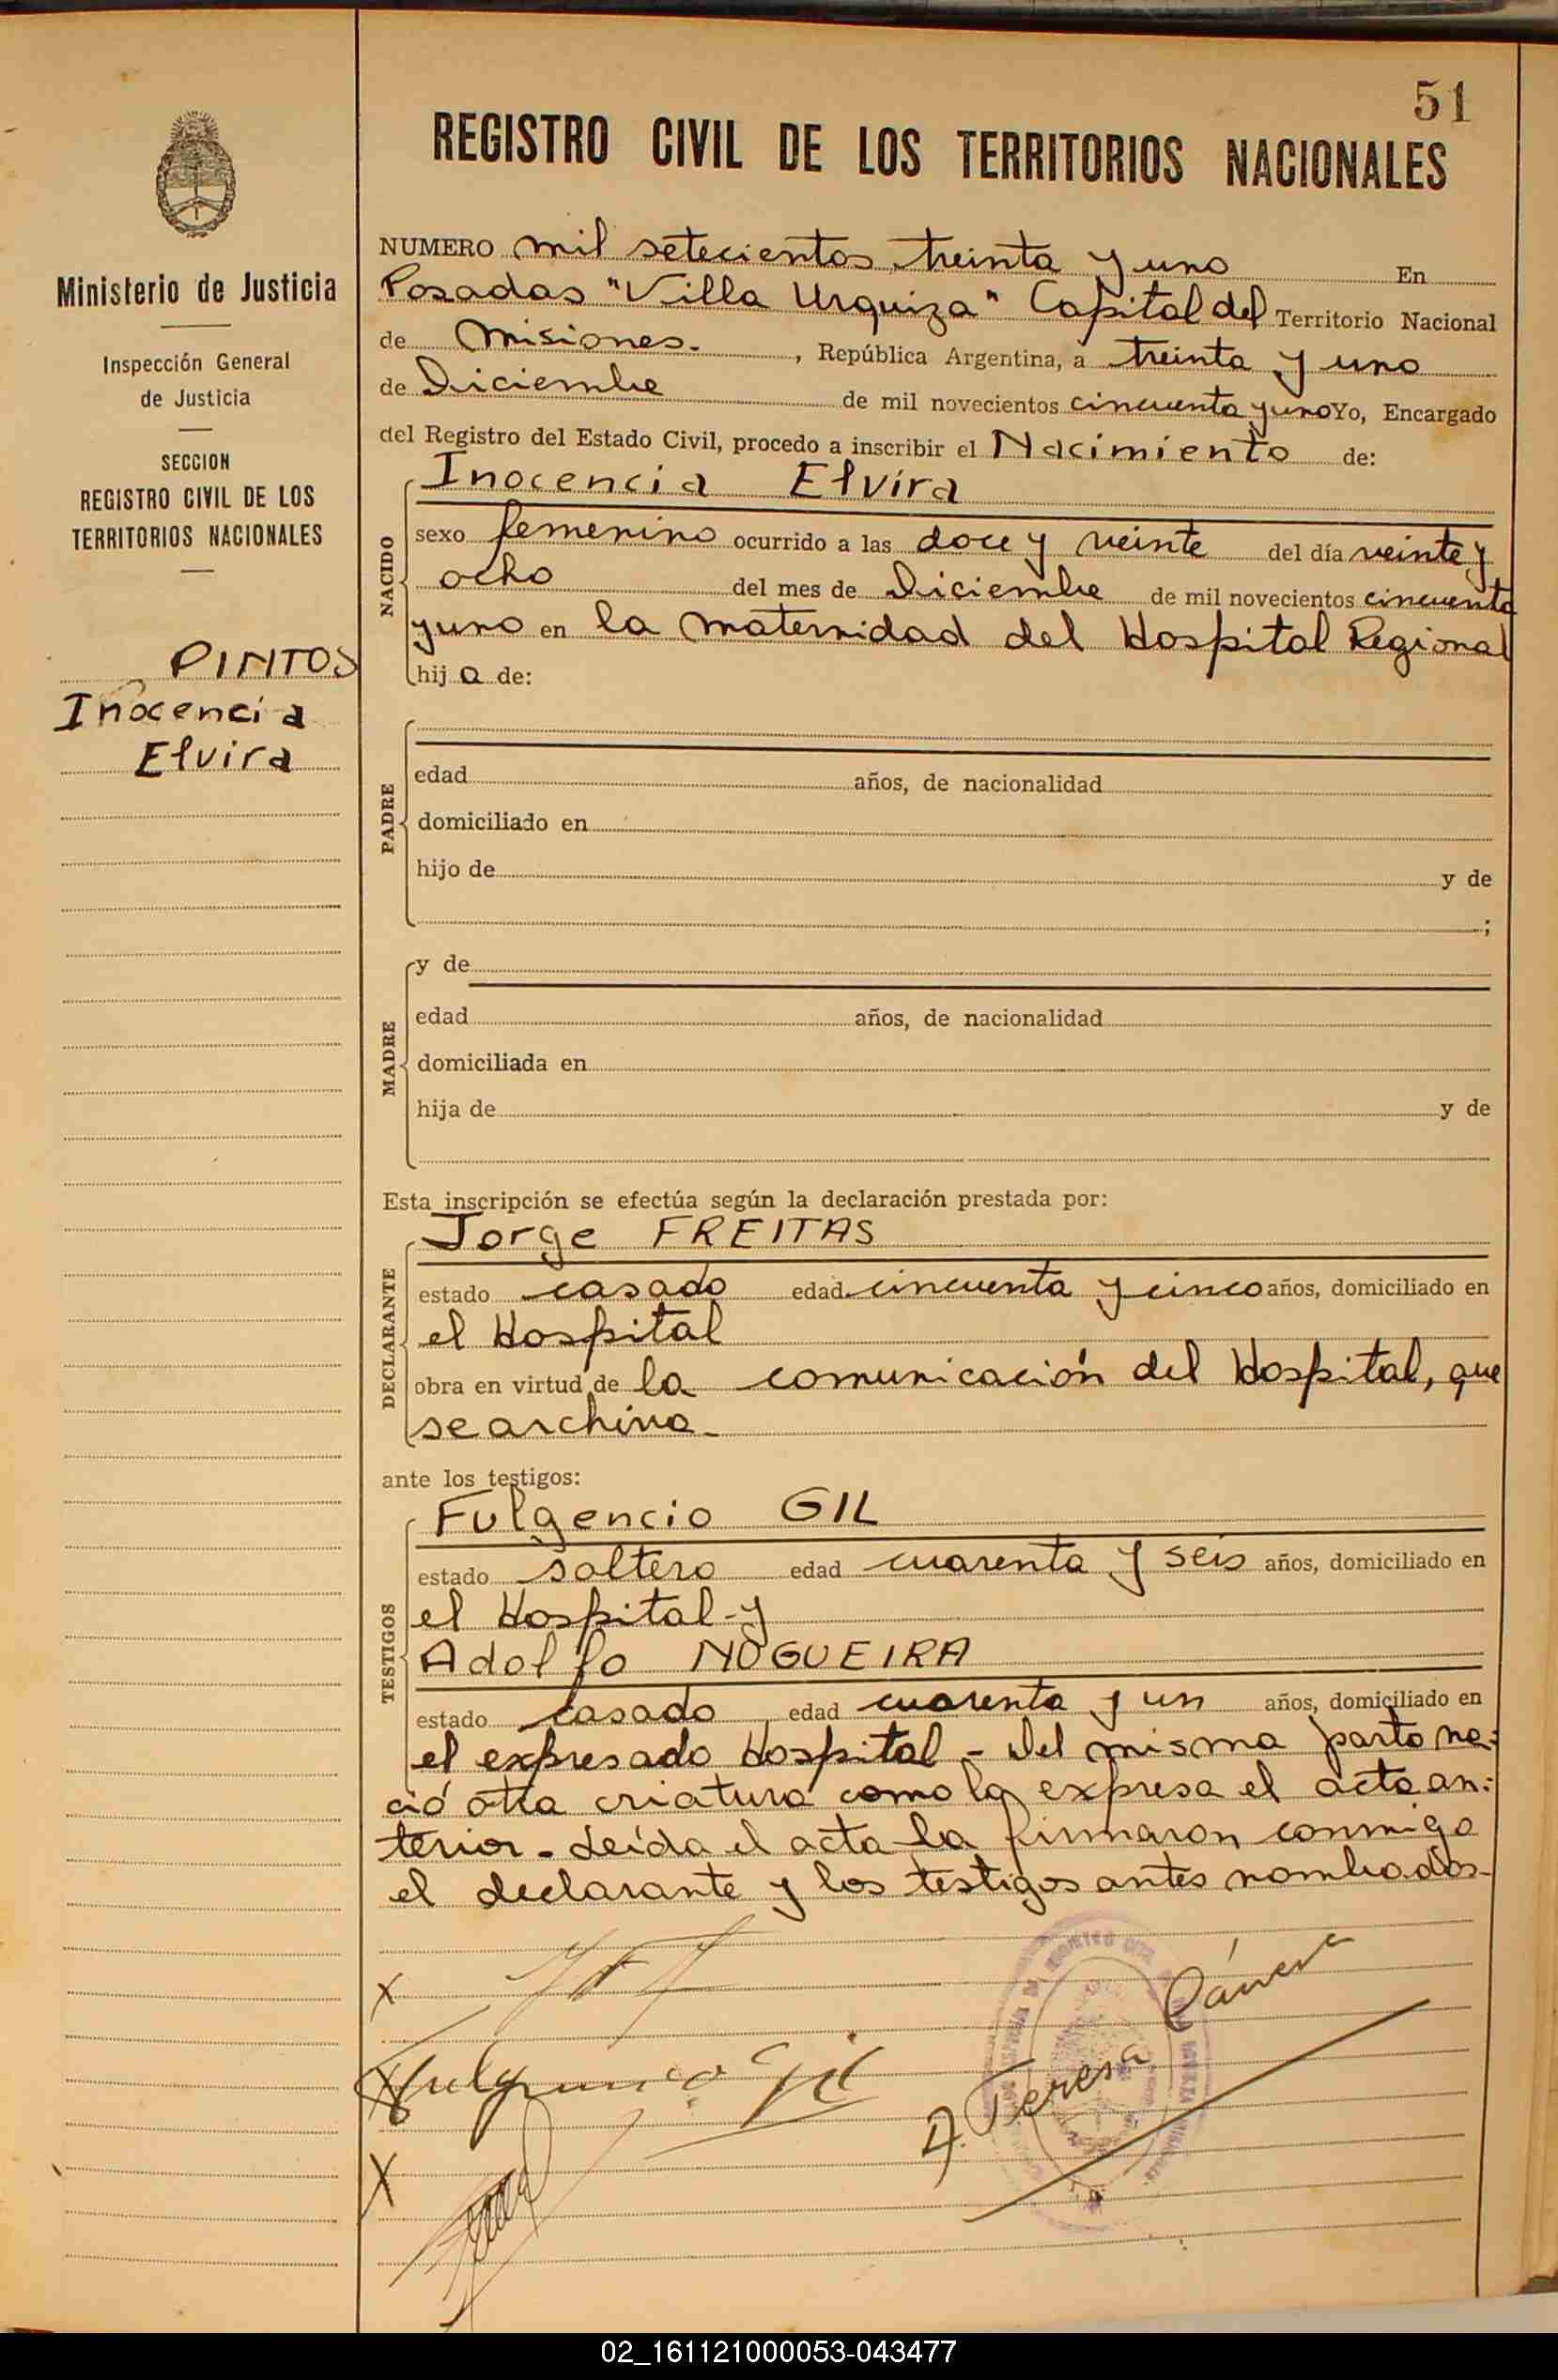 51
REGISTRO CIVIL DE LOS TERRITORIOS NACIONALES
Ministerio de Justicia
Inspección General
de Justicia
SECCION
REGISTRO CIVIL DE LOS
TERRITORIOS NACIONALES
PINTOS
Inocencia
Elvira
NUMERO mil setecientos treinta y uno En
Posadas "Villa Urquiza" Capital del Territorio Nacional
de Misiones. , República Argentina, a treinta y uno
de Diciembre de mil novecientos cincuenta y uno Yo, Encargado
del Registro del Estado Civil, procedo a inscribir el Nacimiento de:
Inocencia Elvira
NACIDO
sexo femenino ocurrido a las doce y veinte del día veinte y
ocho del mes de Diciembre de mil novecientos cincuenta
y uno en la maternidad del Hospital Regional
hij a de:
PADRE
edad años, de nacionalidad
domiciliado en
hijo de y de
;
MADRE
y de
edad años, de nacionalidad
domiciliada en
hija de y de
Esta inscripción se efectúa según la declaración prestada por:
Jorge FREITAS
DECLARANTE
estado casado edad cincuenta y cinco años, domiciliado en
el Hospital
obra en virtud de la comunicación del Hospital, que
se archiva.
ante los testigos:
Fulgencio GIL
TESTIGOS
estado soltero edad cuarenta y seis años, domiciliado en
el Hospital - y
Adolfo NOGUEIRA
estado casado edad cuarenta y un años, domiciliado en
el expresado Hospital - Del mismo parto na=
ció otra criatura como lo expresa el acta an=
terior - Leída el acta la firmaron conmigo
el declarante y los testigos antes nombrados -
X
Fulgencio Gil
A. Teresa
X
02_161121000053-043477